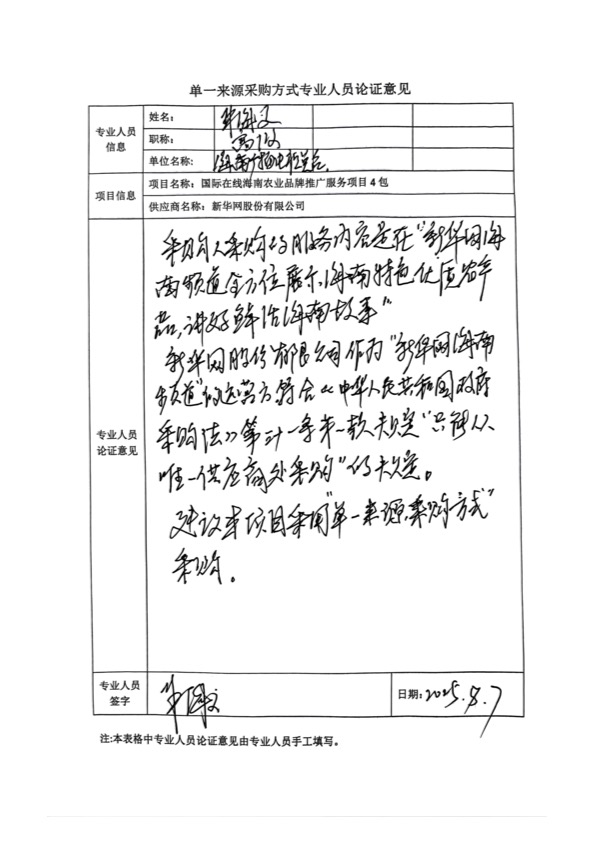 单一来源采购方式专业人员论证意见
专业人员信息
姓名：
职称： 高工
单位名称：
项目信息
项目名称：国际在线海南农业品牌推广服务项目4包
供应商名称：新华网股份有限公司
专业人员论证意见
采购人采购的服务内容是在“新华网海
南频道全方位展示海南特色优质农产
品，讲好鲜活海南故事”
新华网股份有限公司作为“新华网海南
频道”的运营方符合《中华人民共和国政府
采购法》第三十一条第一款规定“只能从
唯一供应商处采购”的规定。
建议本项目采用“单一来源采购方式”
采购。
专业人员签字
日期：2025.8.7
注:本表格中专业人员论证意见由专业人员手工填写。